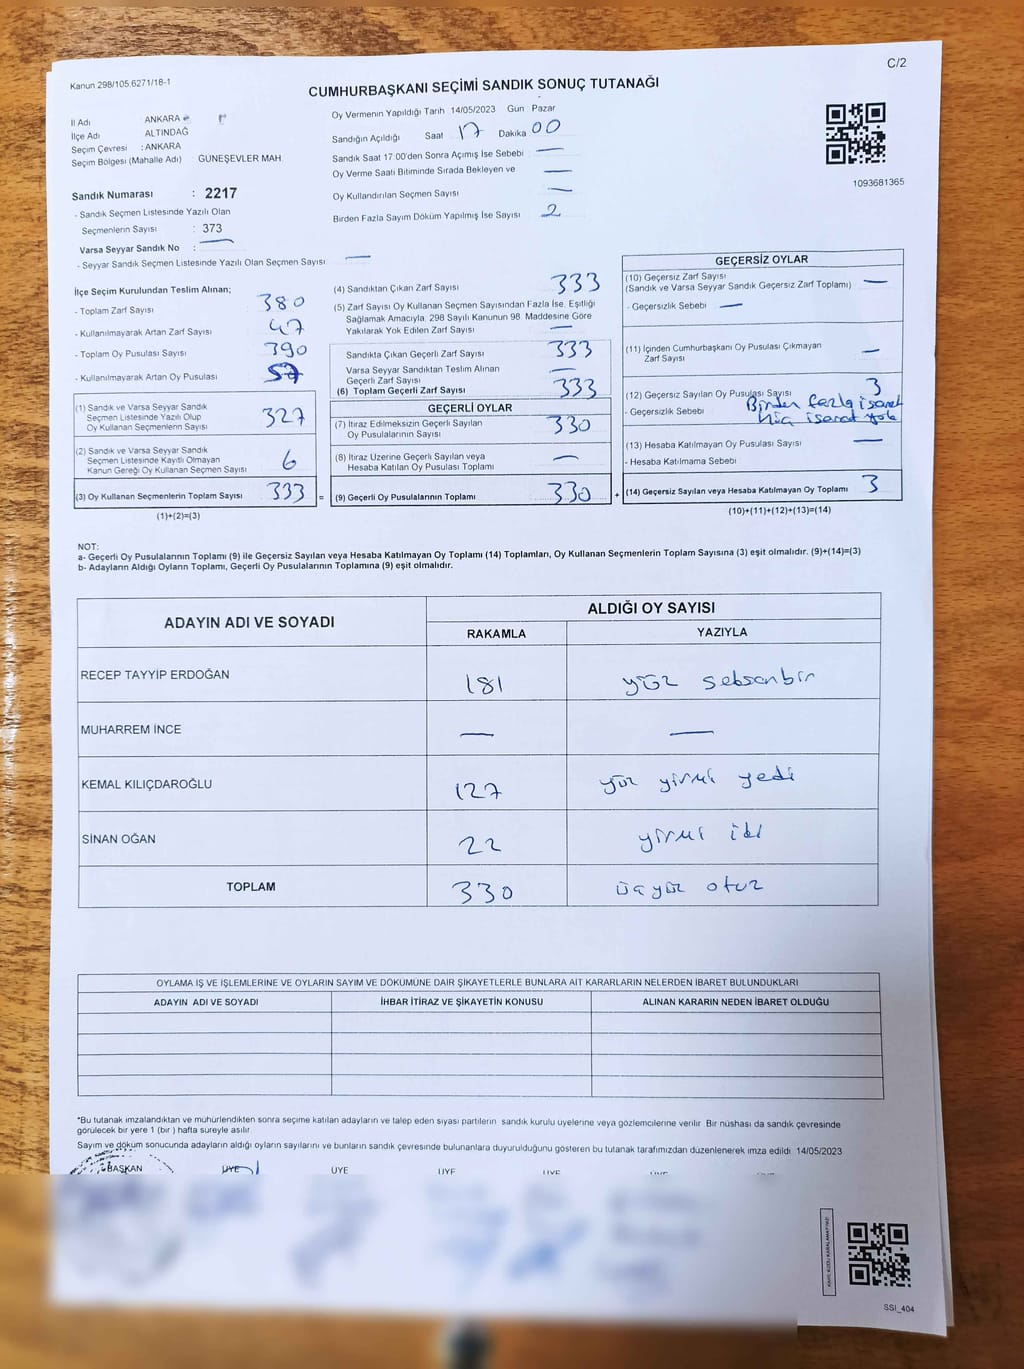 Kanun 298/105.6271/18-1
C/2
CUMHURBAŞKANI SEÇİMİ SANDIK SONUÇ TUTANAĞI
İl Adı ANKARA
İlçe Adı ALTINDAĞ
Seçim Çevresi : ANKARA
Seçim Bölgesi (Mahalle Adı) : GÜNEŞEVLER MAH.
Sandık Numarası : 2217
- Sandık Seçmen Listesinde Yazılı Olan
Seçmenlerin Sayısı : 373
Varsa Seyyar Sandık No : —
- Seyyar Sandık Seçmen Listesinde Yazılı Olan Seçmen Sayısı —
Oy Vermenin Yapıldığı Tarih 14/05/2023 Gün Pazar
Sandığın Açıldığı Saat 17 Dakika 00
Sandık Saat 17:00'den Sonra Açımış İse Sebebi —
Oy Verme Saati Bitiminde Sırada Bekleyen ve —
Oy Kullandırılan Seçmen Sayısı —
Birden Fazla Sayım Döküm Yapılmış İse Sayısı 2
1093681365
İlçe Seçim Kurulundan Teslim Alınan;
- Toplam Zarf Sayısı 380
- Kullanılmayarak Artan Zarf Sayısı 47
- Toplam Oy Pusulası Sayısı 390
- Kullanılmayarak Artan Oy Pusulası 57
(1) Sandık ve Varsa Seyyar Sandık
Seçmen Listesinde Yazılı Olup
Oy Kullanan Seçmenlerin Sayısı 327
(2) Sandık ve Varsa Seyyar Sandık
Seçmen Listesinde Kayıtlı Olmayan
Kanun Gereği Oy Kullanan Seçmen Sayısı 6
(3) Oy Kullanan Seçmenlerin Toplam Sayısı 333 =
(1)+(2)=(3)
(4) Sandıktan Çıkan Zarf Sayısı 333
(5) Zarf Sayısı Oy Kullanan Seçmen Sayısından Fazla İse, Eşitliği
Sağlamak Amacıyla, 298 Sayılı Kanunun 98. Maddesine Göre
Yakılarak Yok Edilen Zarf Sayısı —
Sandıkta Çıkan Geçerli Zarf Sayısı 333
Varsa Seyyar Sandıktan Teslim Alınan
Geçerli Zarf Sayısı —
(6) Toplam Geçerli Zarf Sayısı 333
GEÇERLİ OYLAR
(7) İtiraz Edilmeksizin Geçerli Sayılan
Oy Pusulalarının Sayısı 330
(8) İtiraz Üzerine Geçerli Sayılan veya
Hesaba Katılan Oy Pusulası Toplamı —
(9) Geçerli Oy Pusulalarının Toplamı 330 +
GEÇERSİZ OYLAR
(10) Geçersiz Zarf Sayısı
(Sandık ve Varsa Seyyar Sandık Geçersiz Zarf Toplamı) —
- Geçersizlik Sebebi —
(11) İçinden Cumhurbaşkanı Oy Pusulası Çıkmayan
Zarf Sayısı —
(12) Geçersiz Sayılan Oy Pusulası Sayısı 3
- Geçersizlik Sebebi Birden fazla işaret
Hiç işaret yok
(13) Hesaba Katılmayan Oy Pusulası Sayısı —
- Hesaba Katılmama Sebebi
(14) Geçersiz Sayılan veya Hesaba Katılmayan Oy Toplamı 3
(10)+(11)+(12)+(13)=(14)
NOT:
a- Geçerli Oy Pusulalarının Toplamı (9) ile Geçersiz Sayılan veya Hesaba Katılmayan Oy Toplamı (14) Toplamları, Oy Kullanan Seçmenlerin Toplam Sayısına (3) eşit olmalıdır. (9)+(14)=(3)
b- Adayların Aldığı Oyların Toplamı, Geçerli Oy Pusulalarının Toplamına (9) eşit olmalıdır.
ADAYIN ADI VE SOYADI ALDIĞI OY SAYISI
RAKAMLA YAZIYLA
RECEP TAYYİP ERDOĞAN 181 yüz seksenbir
MUHARREM İNCE — —
KEMAL KILIÇDAROĞLU 127 yüz yirmi yedi
SİNAN OĞAN 22 yirmi iki
TOPLAM 330 üçyüz otuz
OYLAMA İŞ VE İŞLEMLERİNE VE OYLARIN SAYIM VE DÖKÜMÜNE DAİR ŞİKAYETLERLE BUNLARA AİT KARARLARIN NELERDEN İBARET BULUNDUKLARI
ADAYIN ADI VE SOYADI İHBAR İTİRAZ VE ŞİKAYETİN KONUSU ALINAN KARARIN NEDEN İBARET OLDUĞU
*Bu tutanak imzalandıktan ve mühürlendikten sonra seçime katılan adayların ve talep eden siyasi partilerin sandık kurulu üyelerine veya gözlemcilerine verilir. Bir nüshası da sandık çevresinde
görülecek bir yere 1 (bir ) hafta süreyle asılır.
Sayım ve döküm sonucunda adayların aldığı oyların sayılarını ve bunların sandık çevresinde bulunanlara duyurulduğunu gösteren bu tutanak tarafımızdan düzenlenerek imza edildi. 14/05/2023
BAŞKAN ÜYE ÜYE ÜYE ÜYE
SSİ_404